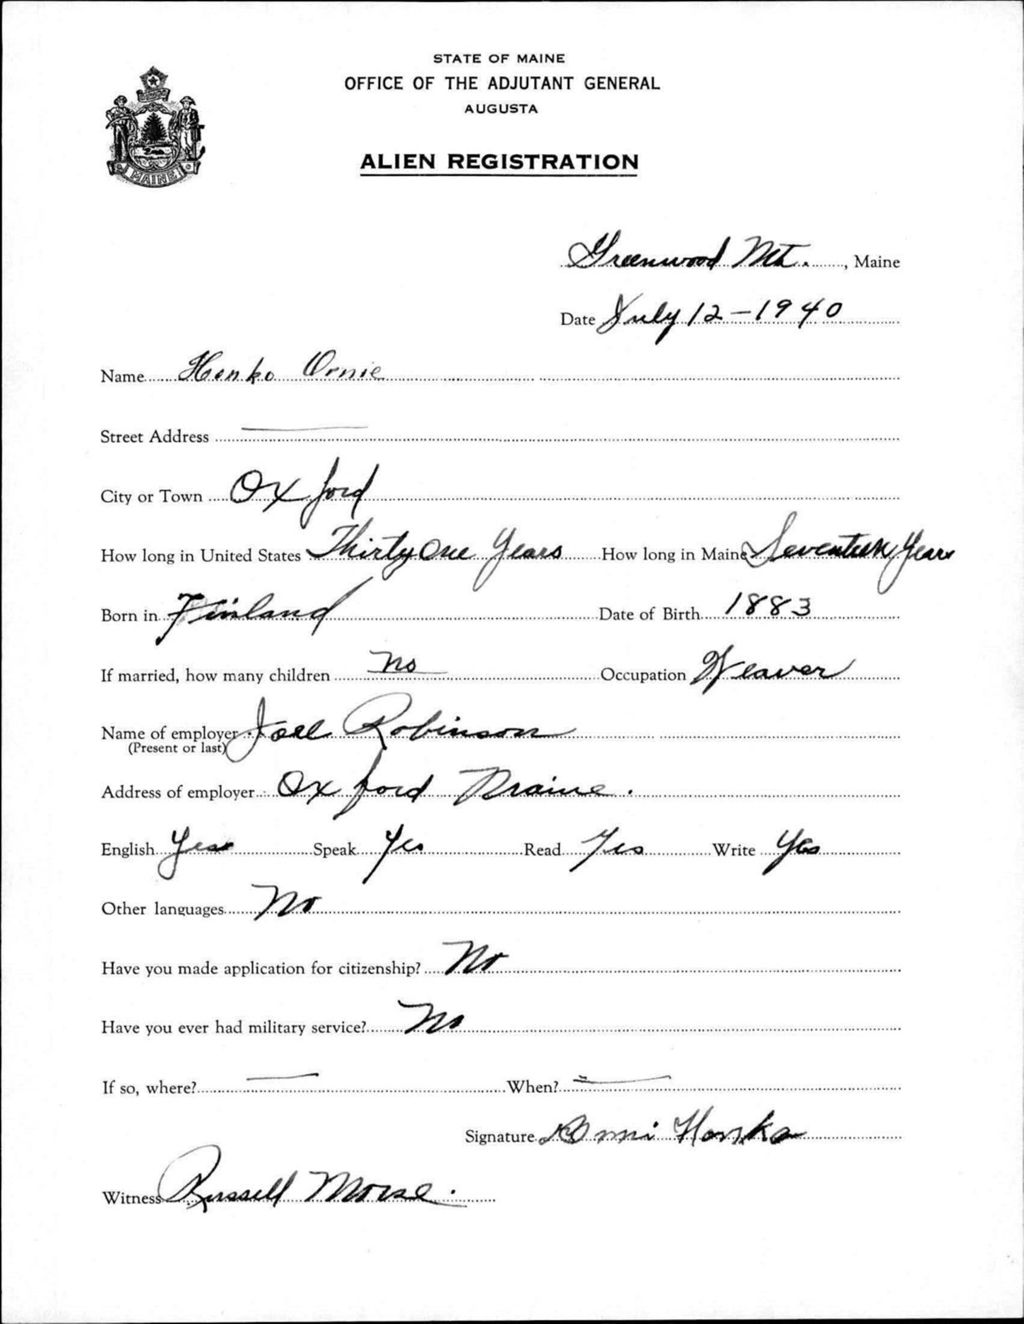 STATE OF MAINE
OFFICE OF THE ADJUTANT GENERAL
AUGUSTA
MAINE
ALIEN REGISTRATION
Greenwood Mt. , Maine
Date July 12-1940
Name Honko Ornie
Street Address
City or Town Oxford
How long in United States Thirty One Years How long in Maine Seventeen Years
Born in Finland Date of Birth 1883
If married, how many children No Occupation Weaver
Name of employer Joel Robinson
(Present or last)
Address of employer Oxford Maine.
English Yes Speak Yes Read Yes Write Yes
Other languages No
Have you made application for citizenship? No
Have you ever had military service? No
If so, where? When?
Signature Honko
Witness Russell Morse.